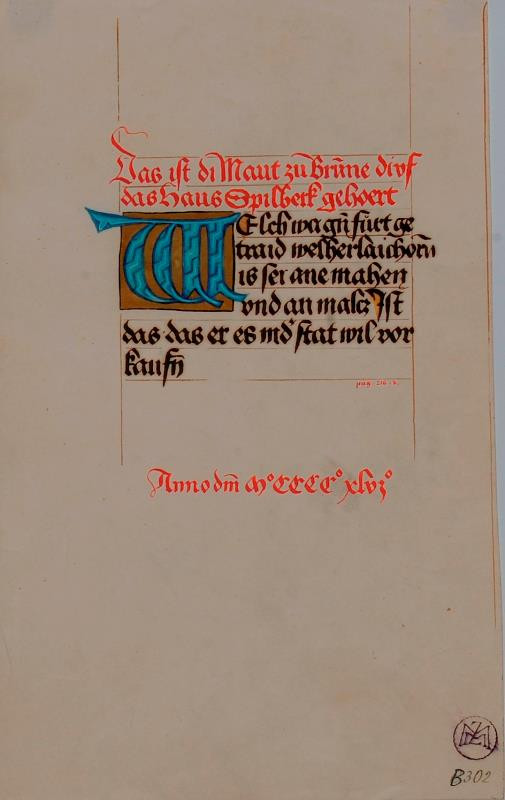 Das ist di Maut zu Brūne di vf
das Haus Spilberk gehoert
WElch wagn̄ fürt ge
traid welherlai chorn̄
is sei ane mahen
vnd an malcz Ist
das das er es in dˢ stat wil vor
kaufn̄
pag. 216. b.
Anno dm̄ Mº CCCCº xlviº
B302